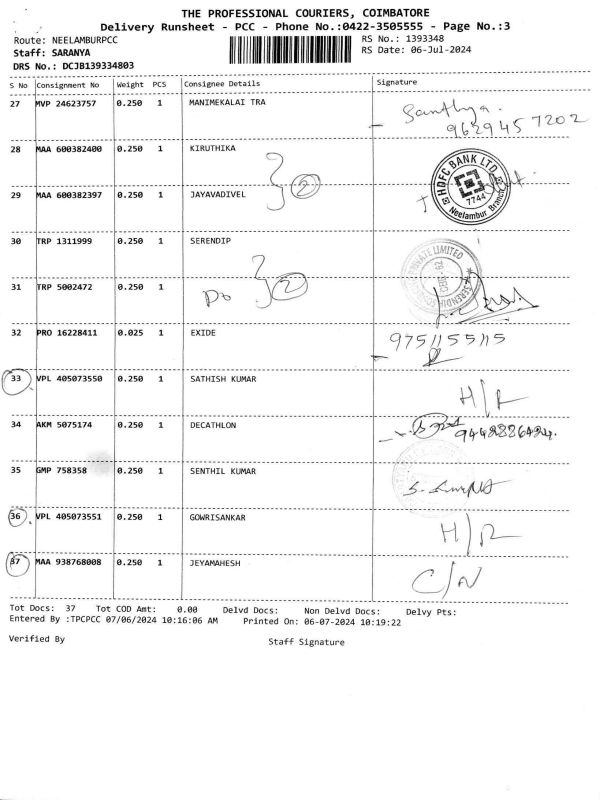 THE PROFESSIONAL COURIERS, COIMBATORE
Delivery Runsheet - PCC - Phone No.:0422-3505555 - Page No.:3
Route: NEELAMBURPCC RS No.: 1393348
Staff: SARANYA RS Date: 06-Jul-2024
DRS No.: DCJB139334803
S No Consignment No Weight PCS Consignee Details Signature
27 MVP 24623757 0.250 1 MANIMEKALAI TRA Santhya.
9629457202
28 MAA 600382400 0.250 1 KIRUTHIKA
2
HDFC BANK LTD
7744
Neelambur Branch
29 MAA 600382397 0.250 1 JAYAVADIVEL
30 TRP 1311999 0.250 1 SERENDIP
PRIVATE LIMITED
31 TRP 5002472 0.250 1
Do 2
32 PRO 16228411 0.025 1 EXIDE 9751155115
33 VPL 405073550 0.250 1 SATHISH KUMAR H/R
34 AKM 5075174 0.250 1 DECATHLON
35 GMP 758358 0.250 1 SENTHIL KUMAR
36 VPL 405073551 0.250 1 GOWRISANKAR H/R
37 MAA 938768008 0.250 1 JEYAMAHESH C/N
Tot Docs: 37 Tot COD Amt: 0.00 Delvd Docs: Non Delvd Docs: Delvy Pts:
Entered By :TPCPCC 07/06/2024 10:16:06 AM Printed On: 06-07-2024 10:19:22
Verified By Staff Signature